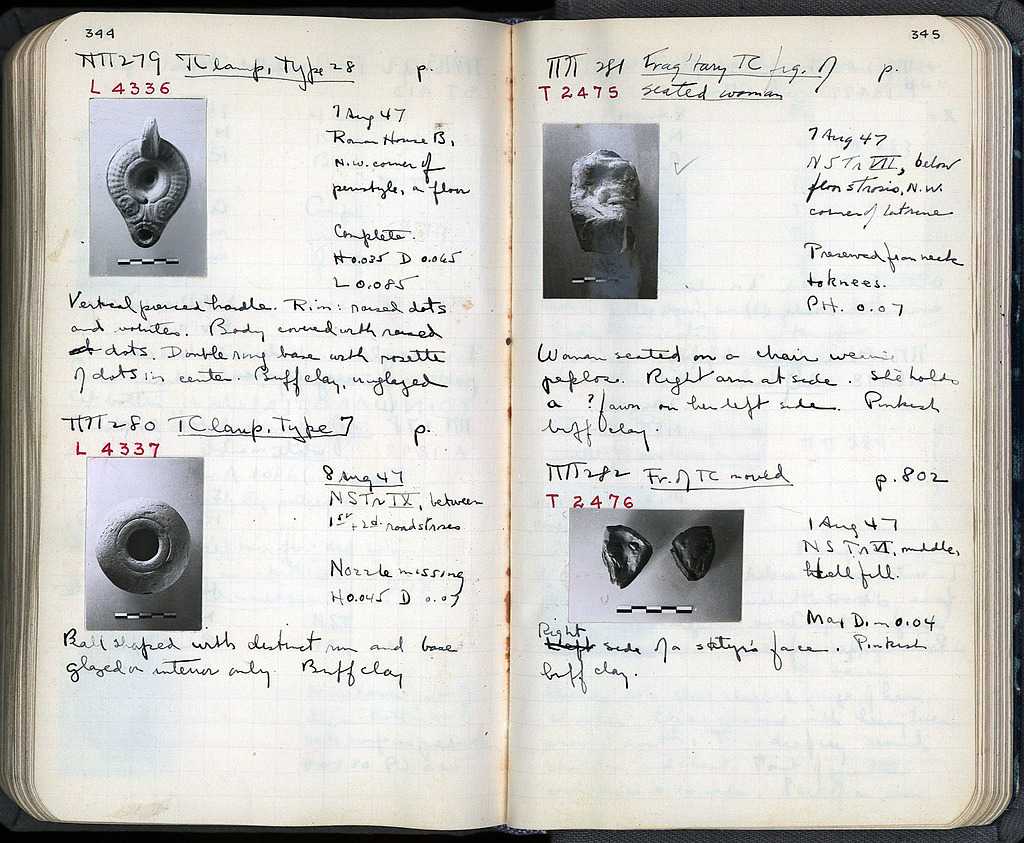 344
ΠΠ279 TC lamp, Type 28 p.
L 4336
7 Aug 47
Roman House B,
N.W. corner of
peristyle, on floor
Complete.
H 0.035 D 0.065
L 0.085
Vertical pierced handle. Rim: raised dots
and volutes. Body covered with raised
dots. Double ring base with rosette
of dots in center. Buff clay, unglazed
ΠΠ280 TC lamp, Type 7 p.
L 4337
8 Aug 47
NSTr IX, between
1st + 2d road strosis
Nozzle missing
H 0.045 D 0.07
Ball shaped with distinct rim and base
glazed on interior only. Buff clay
345
ΠΠ 281 Frag'tary TC fig. of p.
T 2475 seated woman
7 Aug 47
NSTr VII, below
floor strosis, N.W.
corner of latrine
Preserved from neck
to knees.
PH. 0.07
Woman seated on a chair wearing
peplos. Right arm at side. She holds
a ? fawn on her left side. Pinkish
buff clay
ΠΠ282 Fr. of TC mould p. 802
T 2476
1 Aug 47
NSTr VI, middle,
fill.
Max Dim 0.04
Right
Left side of a satyr's face. Pinkish
buff clay.